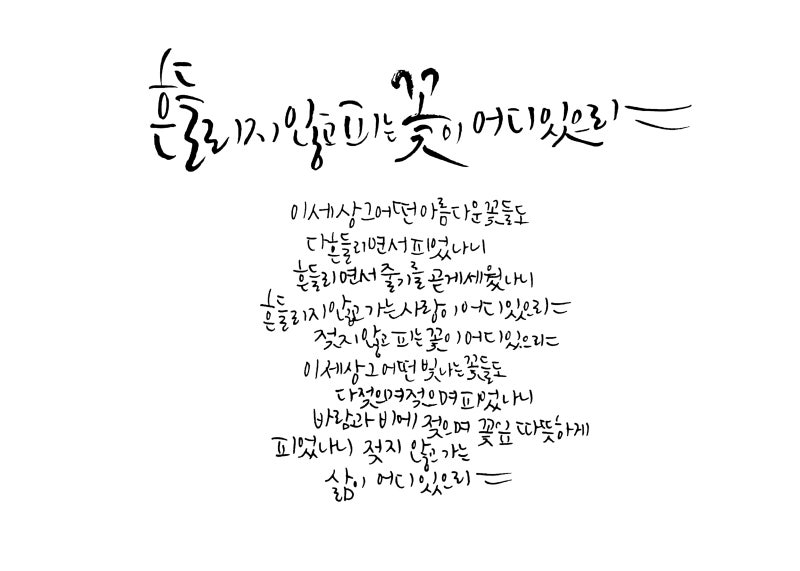 흔들리지 않고 피는 꽃이 어디있으리
이 세상 그 어떤 아름다운 꽃들도
다 흔들리면서 피었나니
흔들리면서 줄기를 곧게 세웠나니
흔들리지 않고 가는 사랑이 어디있으리
젖지 않고 피는 꽃이 어디있으리
이 세상 그 어떤 빛나는 꽃들도
다 젖으며 젖으며 피었나니
바람과 비에 젖으며 꽃잎 따뜻하게
피었나니 젖지 않고 가는
삶이 어디있으리